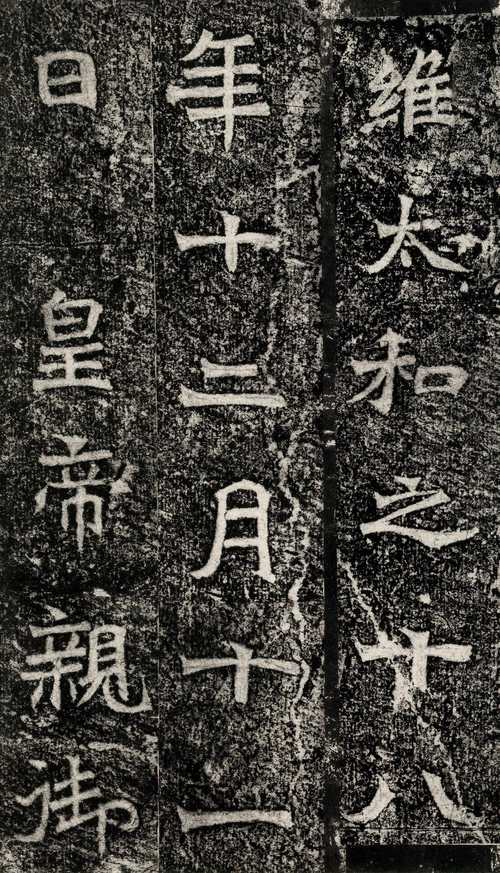 維太和之十八
年十二月十一
日皇帝親御